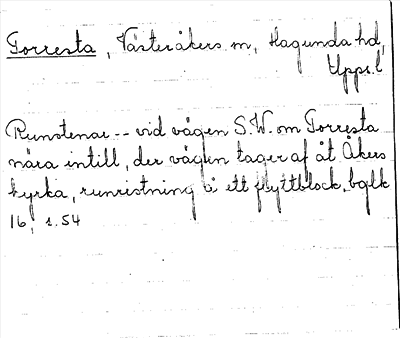 Torresta, Västeråkers sn, Hagunda hd,
Upps.l
Runstenar -- vid vägen S.W. om Torresta
nära intill, der vägen tager af åt Åkers
kyrka, runristning å ett flyttblock, bglk
16, s.54